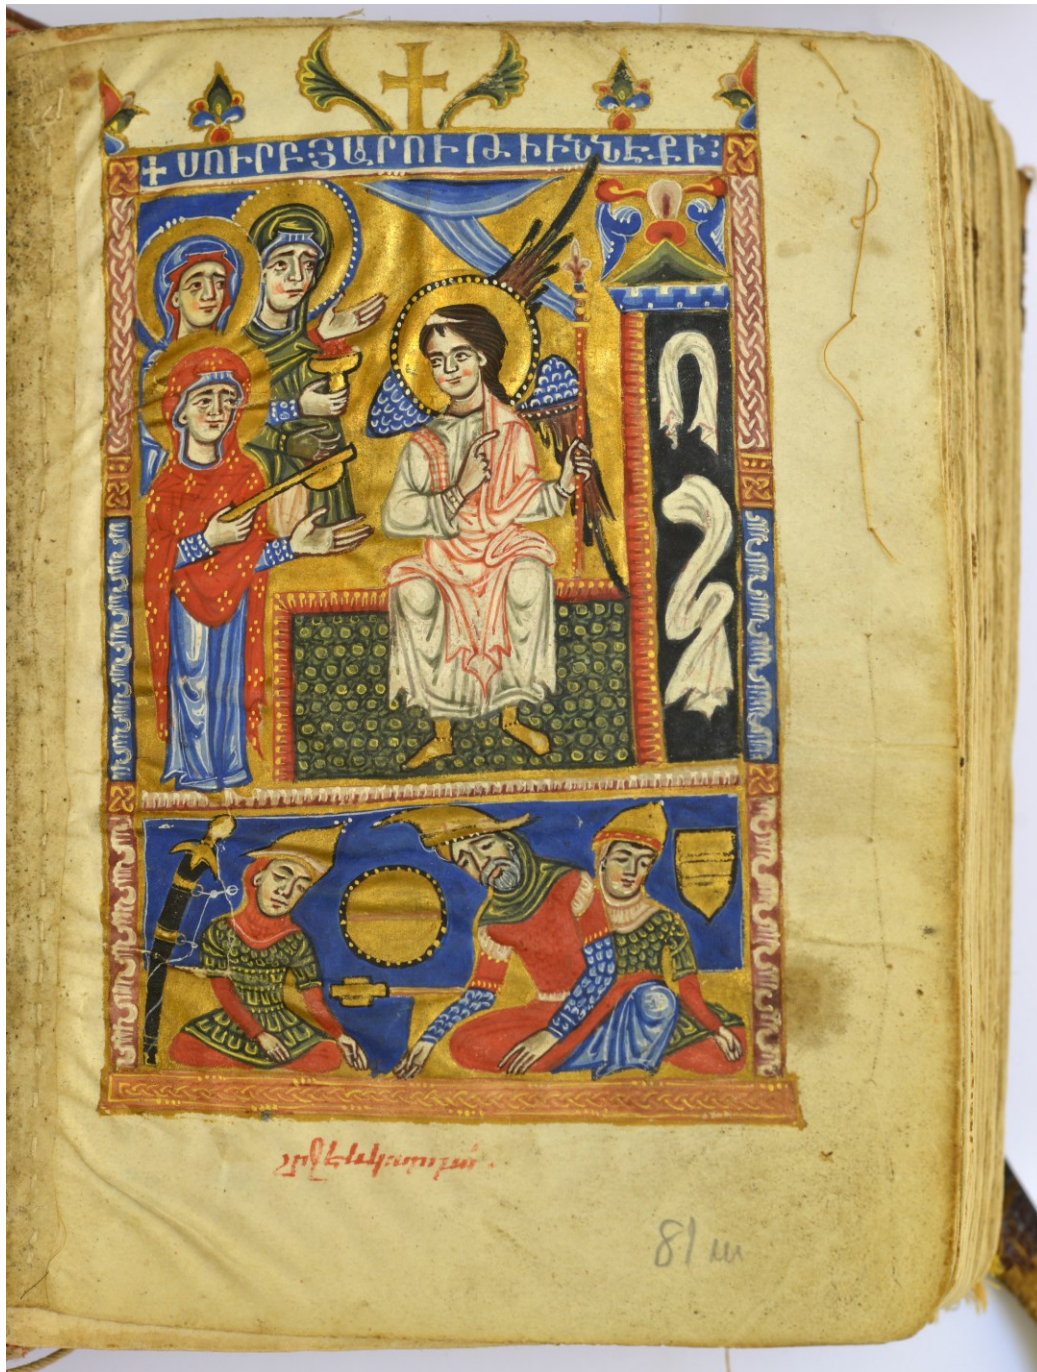 + ՍՈՒՐԲ ՅԱՐՈՒԹԻՒՆՆ Է ՔԻ։
81 ա